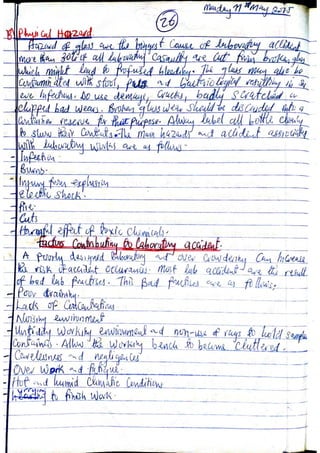 Monday 11th May 2015
(26)
B) Physical Hazard
Hazard of glass are the biggest cause of laboratory accident
more than 30% of all laboratory Casualty are Cut from broken glass
which might lead to profused bleeding. The glass may also be
Contaminated with stool, pus and bacteriological resulting in se
vere infection. Do use damage, Cracks, badly scratched or
chipped bad wears. Broken glass wears should be discarded into a
Container reserve for that purpose. Always label all bottle clearly
to show their Contents. The main hazards and accident associated
with laboratory works are as follows:-
- Infection
- Burns
- Injury from explosion
- Electric Shock.
- Fire
- Cuts
- Harmful effect of toxic Chemicals.
Factors Contributing to laboratory accident.
A poorly designed laboratory and over Crowdening Can increase
the risk of accident occurance. Most lab accident are the result
of bad lab practices. This Bad practices are as follows;
- Poor training
- Lack of Concentration
- Noising environment
- Untiddy working environment and non-use of rags to hold sample
Container. Allow the working bench to became cluttered.
- Carelessness and negligences
- Over work and fatigue.
- Hot and humid Climatic Condition
- to finish work.